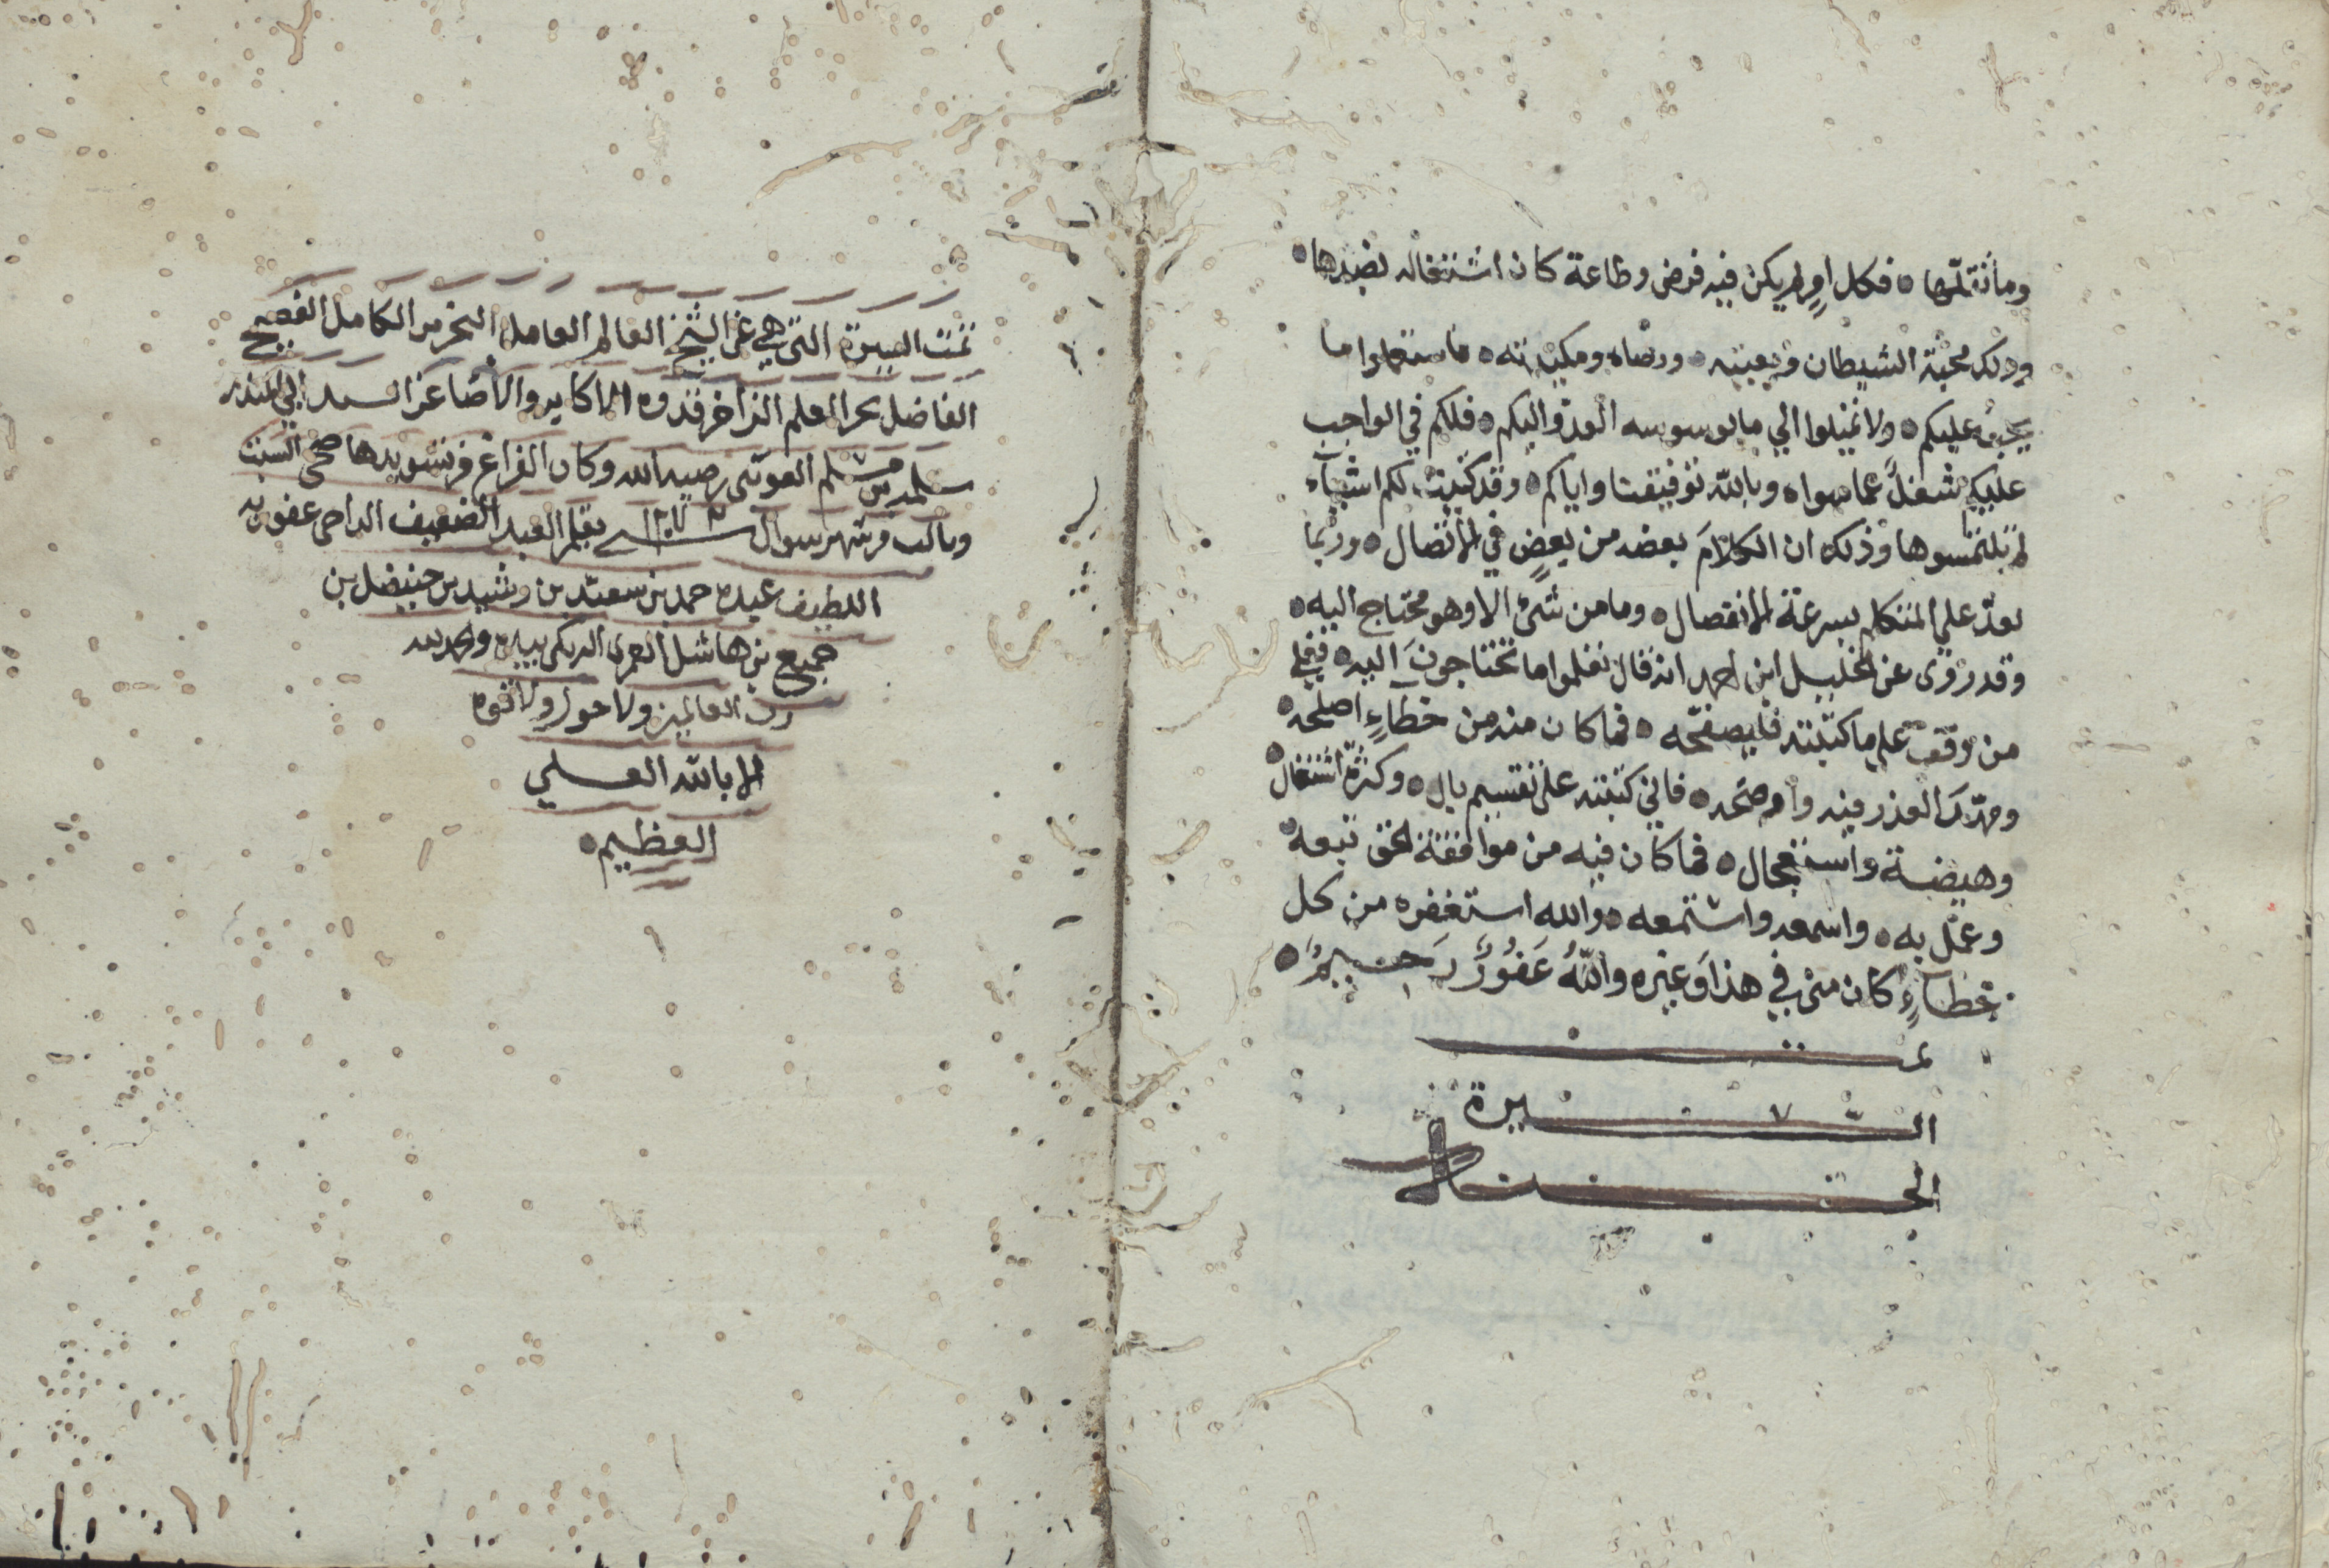 وما نقلتها ه فكل امرٍ لم يكن فيه فرض وطاعة كان اشتغاله بضدها ه
وذلك محبة الشيطان وبغيته ه ورضاه ومكيدته ه فاستعملوا ما
يجب عليكم ه ولا تميلوا الي ما يوسوسه العدو اليكم ه فلكم في الواجب
عليكم شغلٌ عما سواه وبالله توفيقنا واياكم ه وقد كتبت لكم اشيآء
لم تلتمسوها وذلك ان الكلامَ بعضه من بعضٍ في الاتصال ه وربما
يعدّ علي المتكلم بسرعة الانفصال ه وما من شيءٍ الا وهو محتاج اليه ه
وقد روي عن الخليل ابن احمد انه قال تعلموا ما تحتاجونَ اليه ه فعلي
من وقف علي ما كتبته فليصفحّه ه فما كان منه من خطآءٍ اصلحه ه
ومهّدَ العذر فيه واوضحه ه فاني كتبته علي تقسيم بال ه وكثرة اشتغال ه
وهيضة واستعجال ه فما كان فيه من موافقة الحق تبعه ه
وعمل به ه واسمعه واستمعه ه والله استغفره من كل
خطآءٍ كان مني في هذا وغيره واللهُ غَفُورٌ رَحيمٌ ه
تمت
السيرة
تمت السيرة التي هي عن الشيخ العالم العامل النحرير الكامل الفصيح
الفاضل بحر العلم الزاخر قدوة الاكابر والاصاغر السيد ابي المنذر
سلمه بن مسلم العوتبي رحمه الله وكان الفراغ من تسويدها ضحى السبت
من شهر شوال سنة بقلم العبد الضعيف الراجي عفو ربه
اللطيف عبده حمد بن سعيّد بن رشيد بن حنيضل بن
جميع بن هاشل العمري بيده والحمد لله
رب العالمين ولا حول ولا قوة
الا بالله العلي
العظيم ه